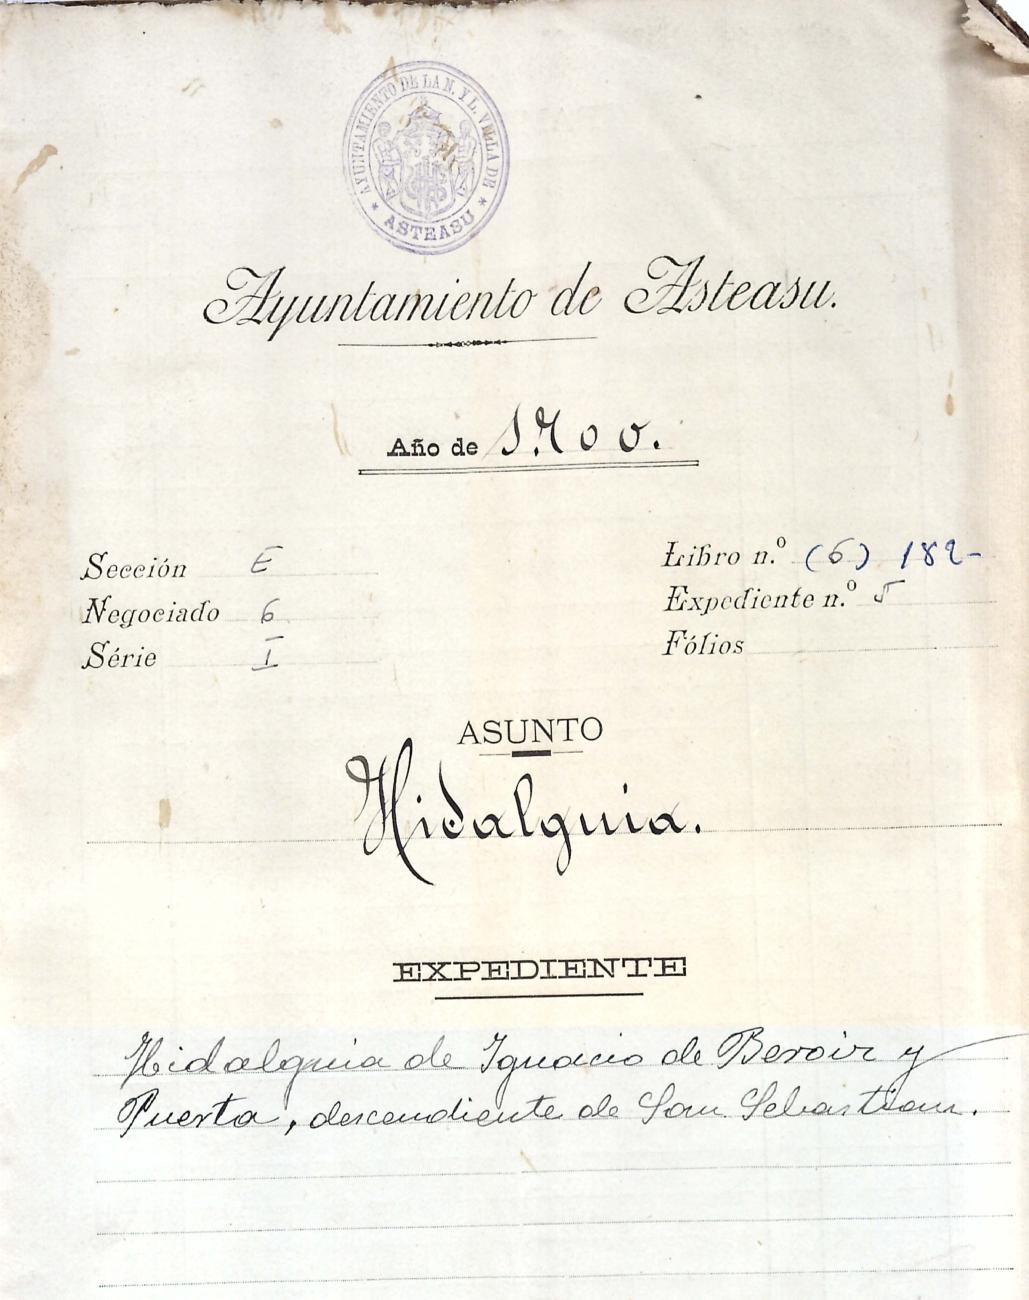 AYUNTAMIENTO DE LA N. Y L. VILLA DE
* ASTEASU *
Ayuntamiento de Asteasu.
Año de 1700.
Sección E
Negociado 6
Série I
Libro n.º (6) 182-
Expediente n.º 5
Fólios
ASUNTO
Hidalguia.
EXPEDIENTE
Hidalguia de Ignacio de Beroiz y
Puerta, descendiente de San Sebastian.